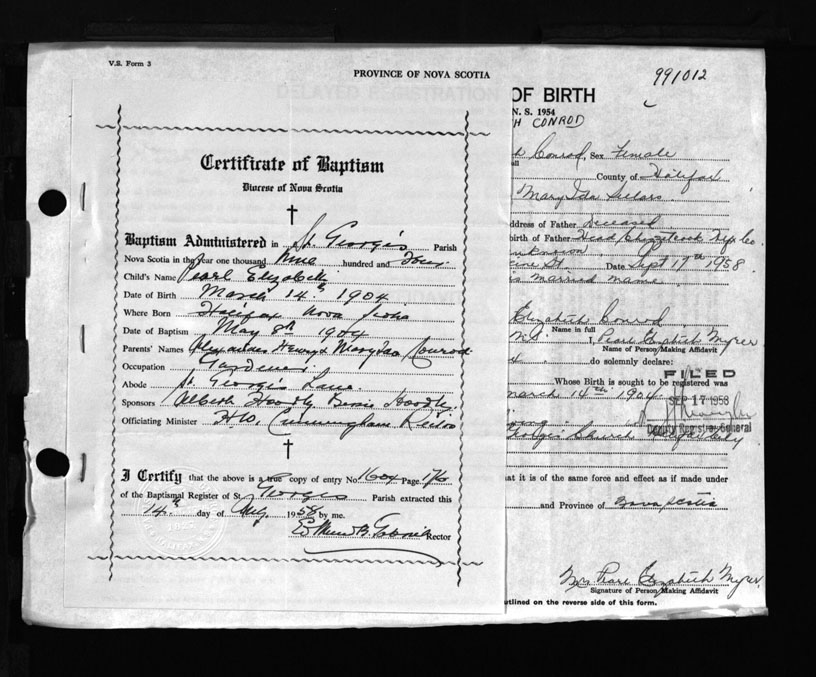 V.S. Form 3
PROVINCE OF NOVA SCOTIA
991012
DELAYED REGISTRATION
OF BIRTH
N. S. 1954
H CONROD
Certificate of Baptism
Diocese of Nova Scotia
Baptism Administered in St. George's Parish
Nova Scotia in the year one thousand nine hundred and four
Child's Name Pearl Elizabeth
Date of Birth March 14th 1904
Where Born Halifax Nova Scotia
Date of Baptism May 8th 1904
Parents' Names Alexander Henry & Mary Ida Conrod
Occupation Gardener
Abode St. George's Lane
Sponsors Albert Hoodly Bessie Hoodly
Officiating Minister H.W. Cunningham Rector
I Certify that the above is a true copy of entry No 1604 Page 176
of the Baptismal Register of St. Georges Parish extracted this
14th day of Aug. 1958 by me.
Rector
h Conrod, Sex Female
County of Halifax
Mary Ida Sellars
ddress of Father Deceased
birth of Father Head Chezzetcook Hfx Co.
nknown
Date Sept 17th 1958
married name
Elizabeth Conrod
Name in full
I, Pearl Elizabeth Myrer
Name of Person Making Affidavit
do solemnly declare:
Whose Birth is sought to be registered was
FILED
March 14th 1904
SEP 17 1958
Deputy Registrar General
George's Church
at it is of the same force and effect as if made under
and Province of Nova Scotia
Mrs Pearl Elizabeth Myrer
Signature of Person Making Affidavit
utlined on the reverse side of this form.